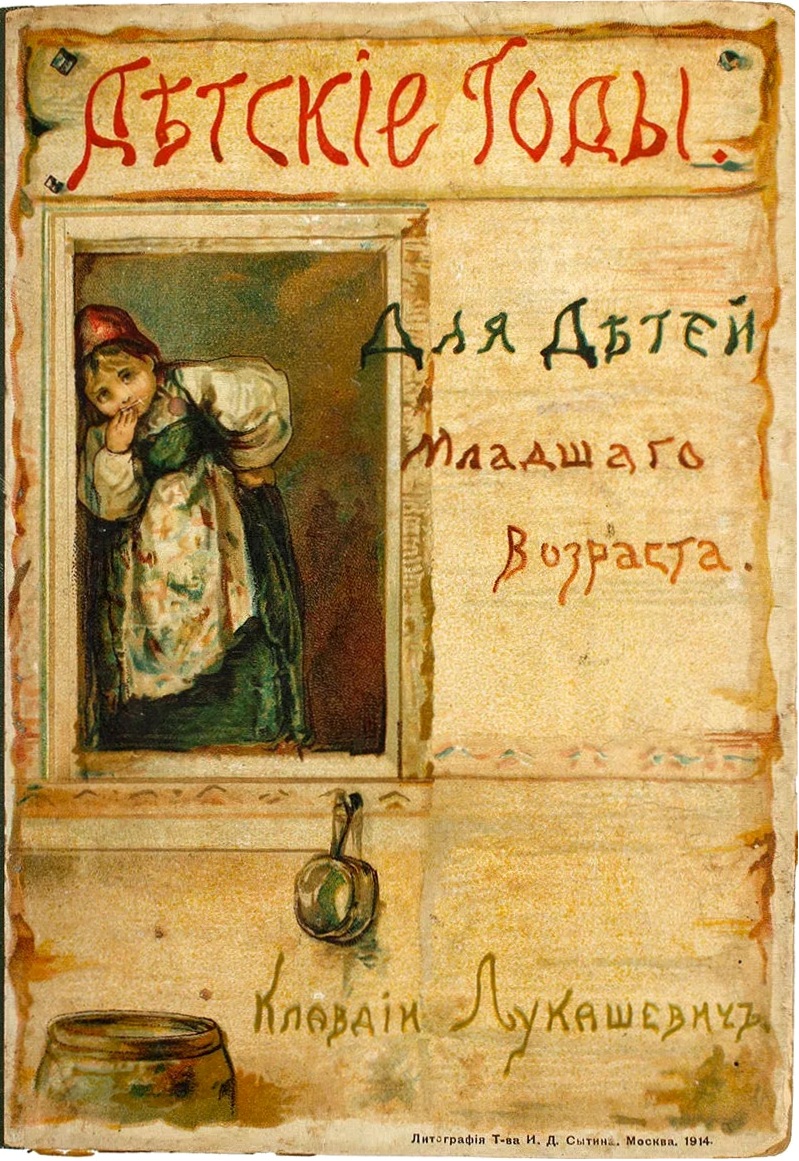 Дѣтскіе Годы.
Для Дѣтей
Младшаго
Возраста.
Клавдіи Лукашевичъ.
Литографія Т-ва И. Д. Сытина. Москва. 1914.